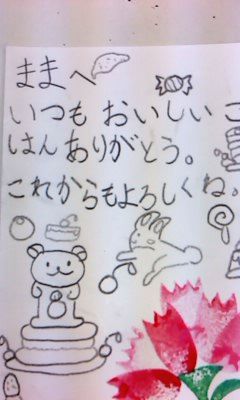 ままへ
いつも おいしいご
はんありがとう。
これからもよろしくね。